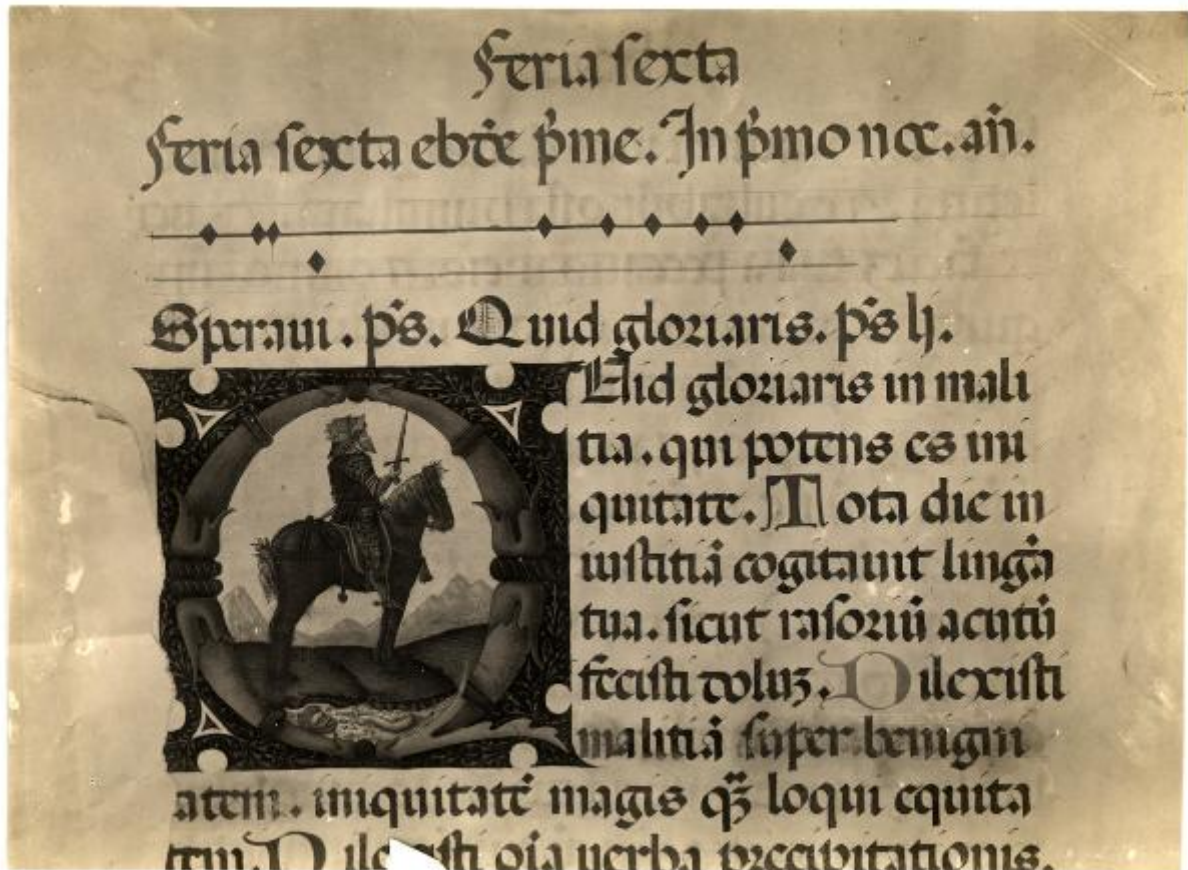 Feria sexta
Feria sexta ebde p̄me. In p̄mo noc. an̄.
Speravi. p̄s. Quid gloriaris. p̄s lj.
Uid gloriaris in mali
tia. qui potens es ini
quitate. Tota die in
iustitiā cogitavit lingā
tua. sicut rasoriū acutū
fecisti doluʒ. Dilexisti
malitiā super benigni
atem. iniquitatē magis qʒ̄ loqui equita
tem. Dilexisti oīa verba precipitationis.